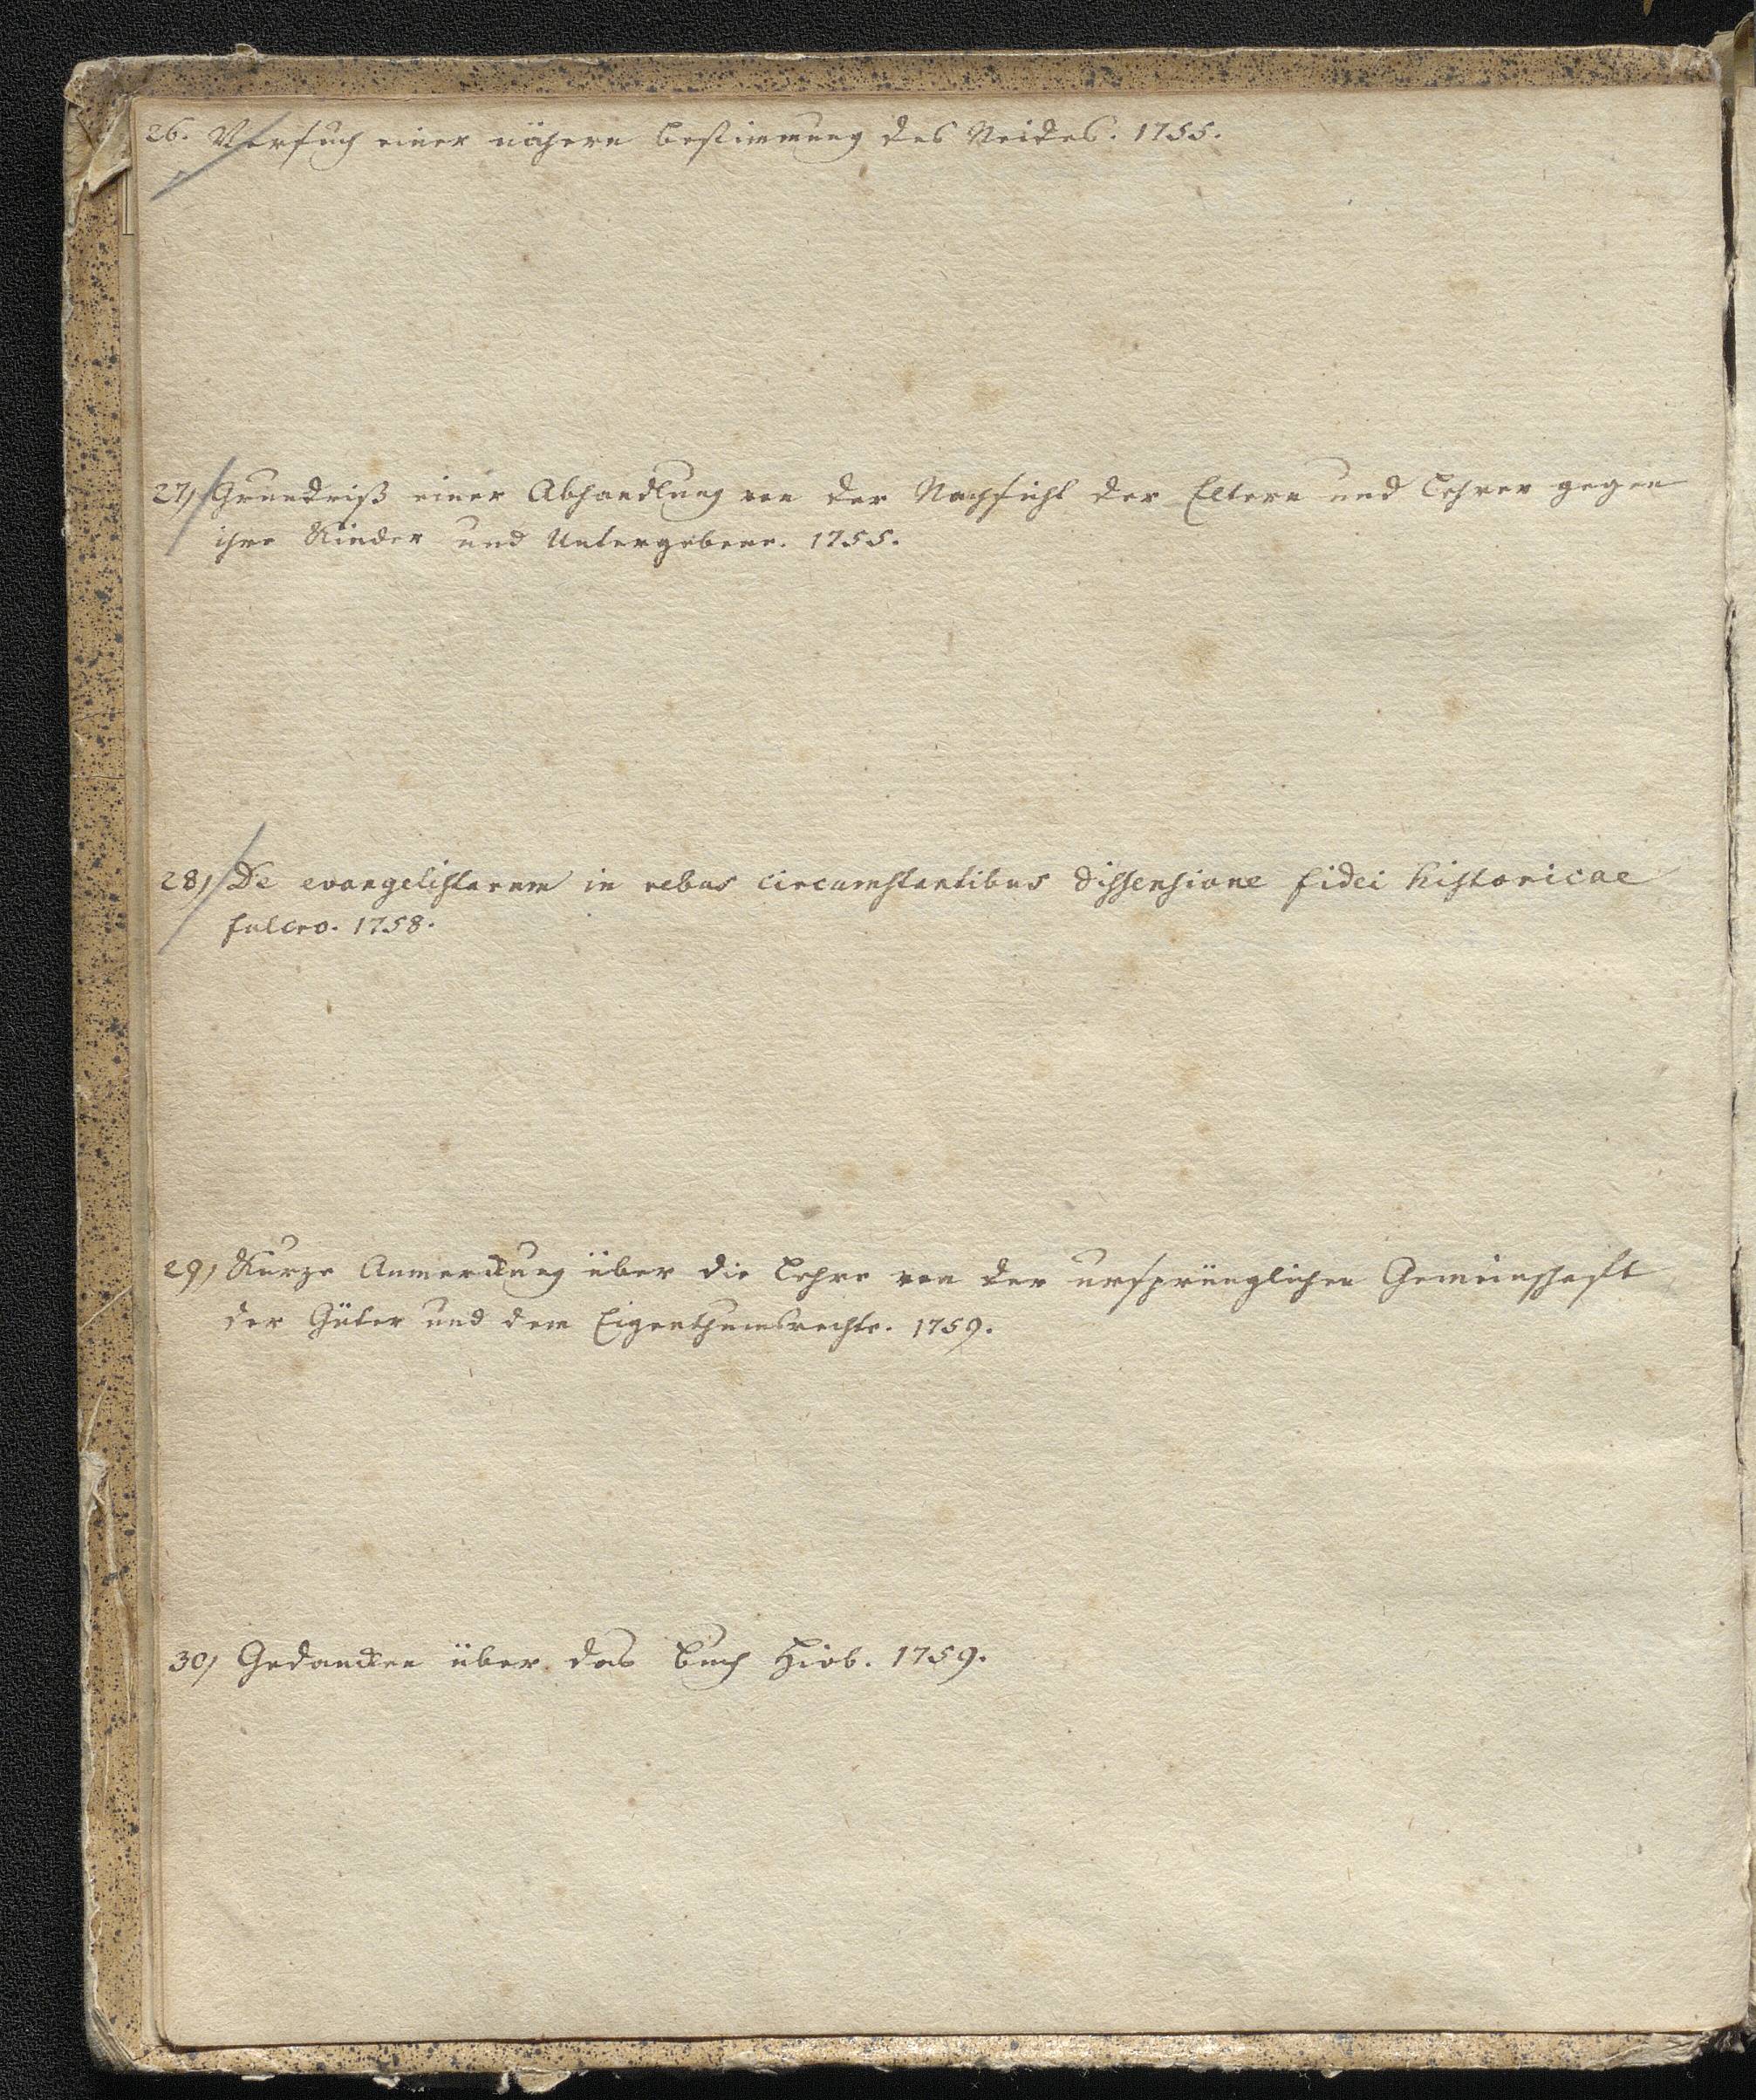 26. Versuch einer nähern Bestimmung des Neides. 1755.
27) Grundriß einer Abhandlung von der Nachsicht der Eltern und Lehrer gegen
ihre Kinder und Untergebene. 1755.
28) De evangelistarum in rebus circumstantibus dissensione fidei historicae
fulcro. 1758.
29) Kurze Anmerckung über die Lehre von der ursprünglichen Gemeinschaft
der Güter und dem Eigenthumsrechte. 1759.
30) Gedancken über das Buch Hiob. 1759.